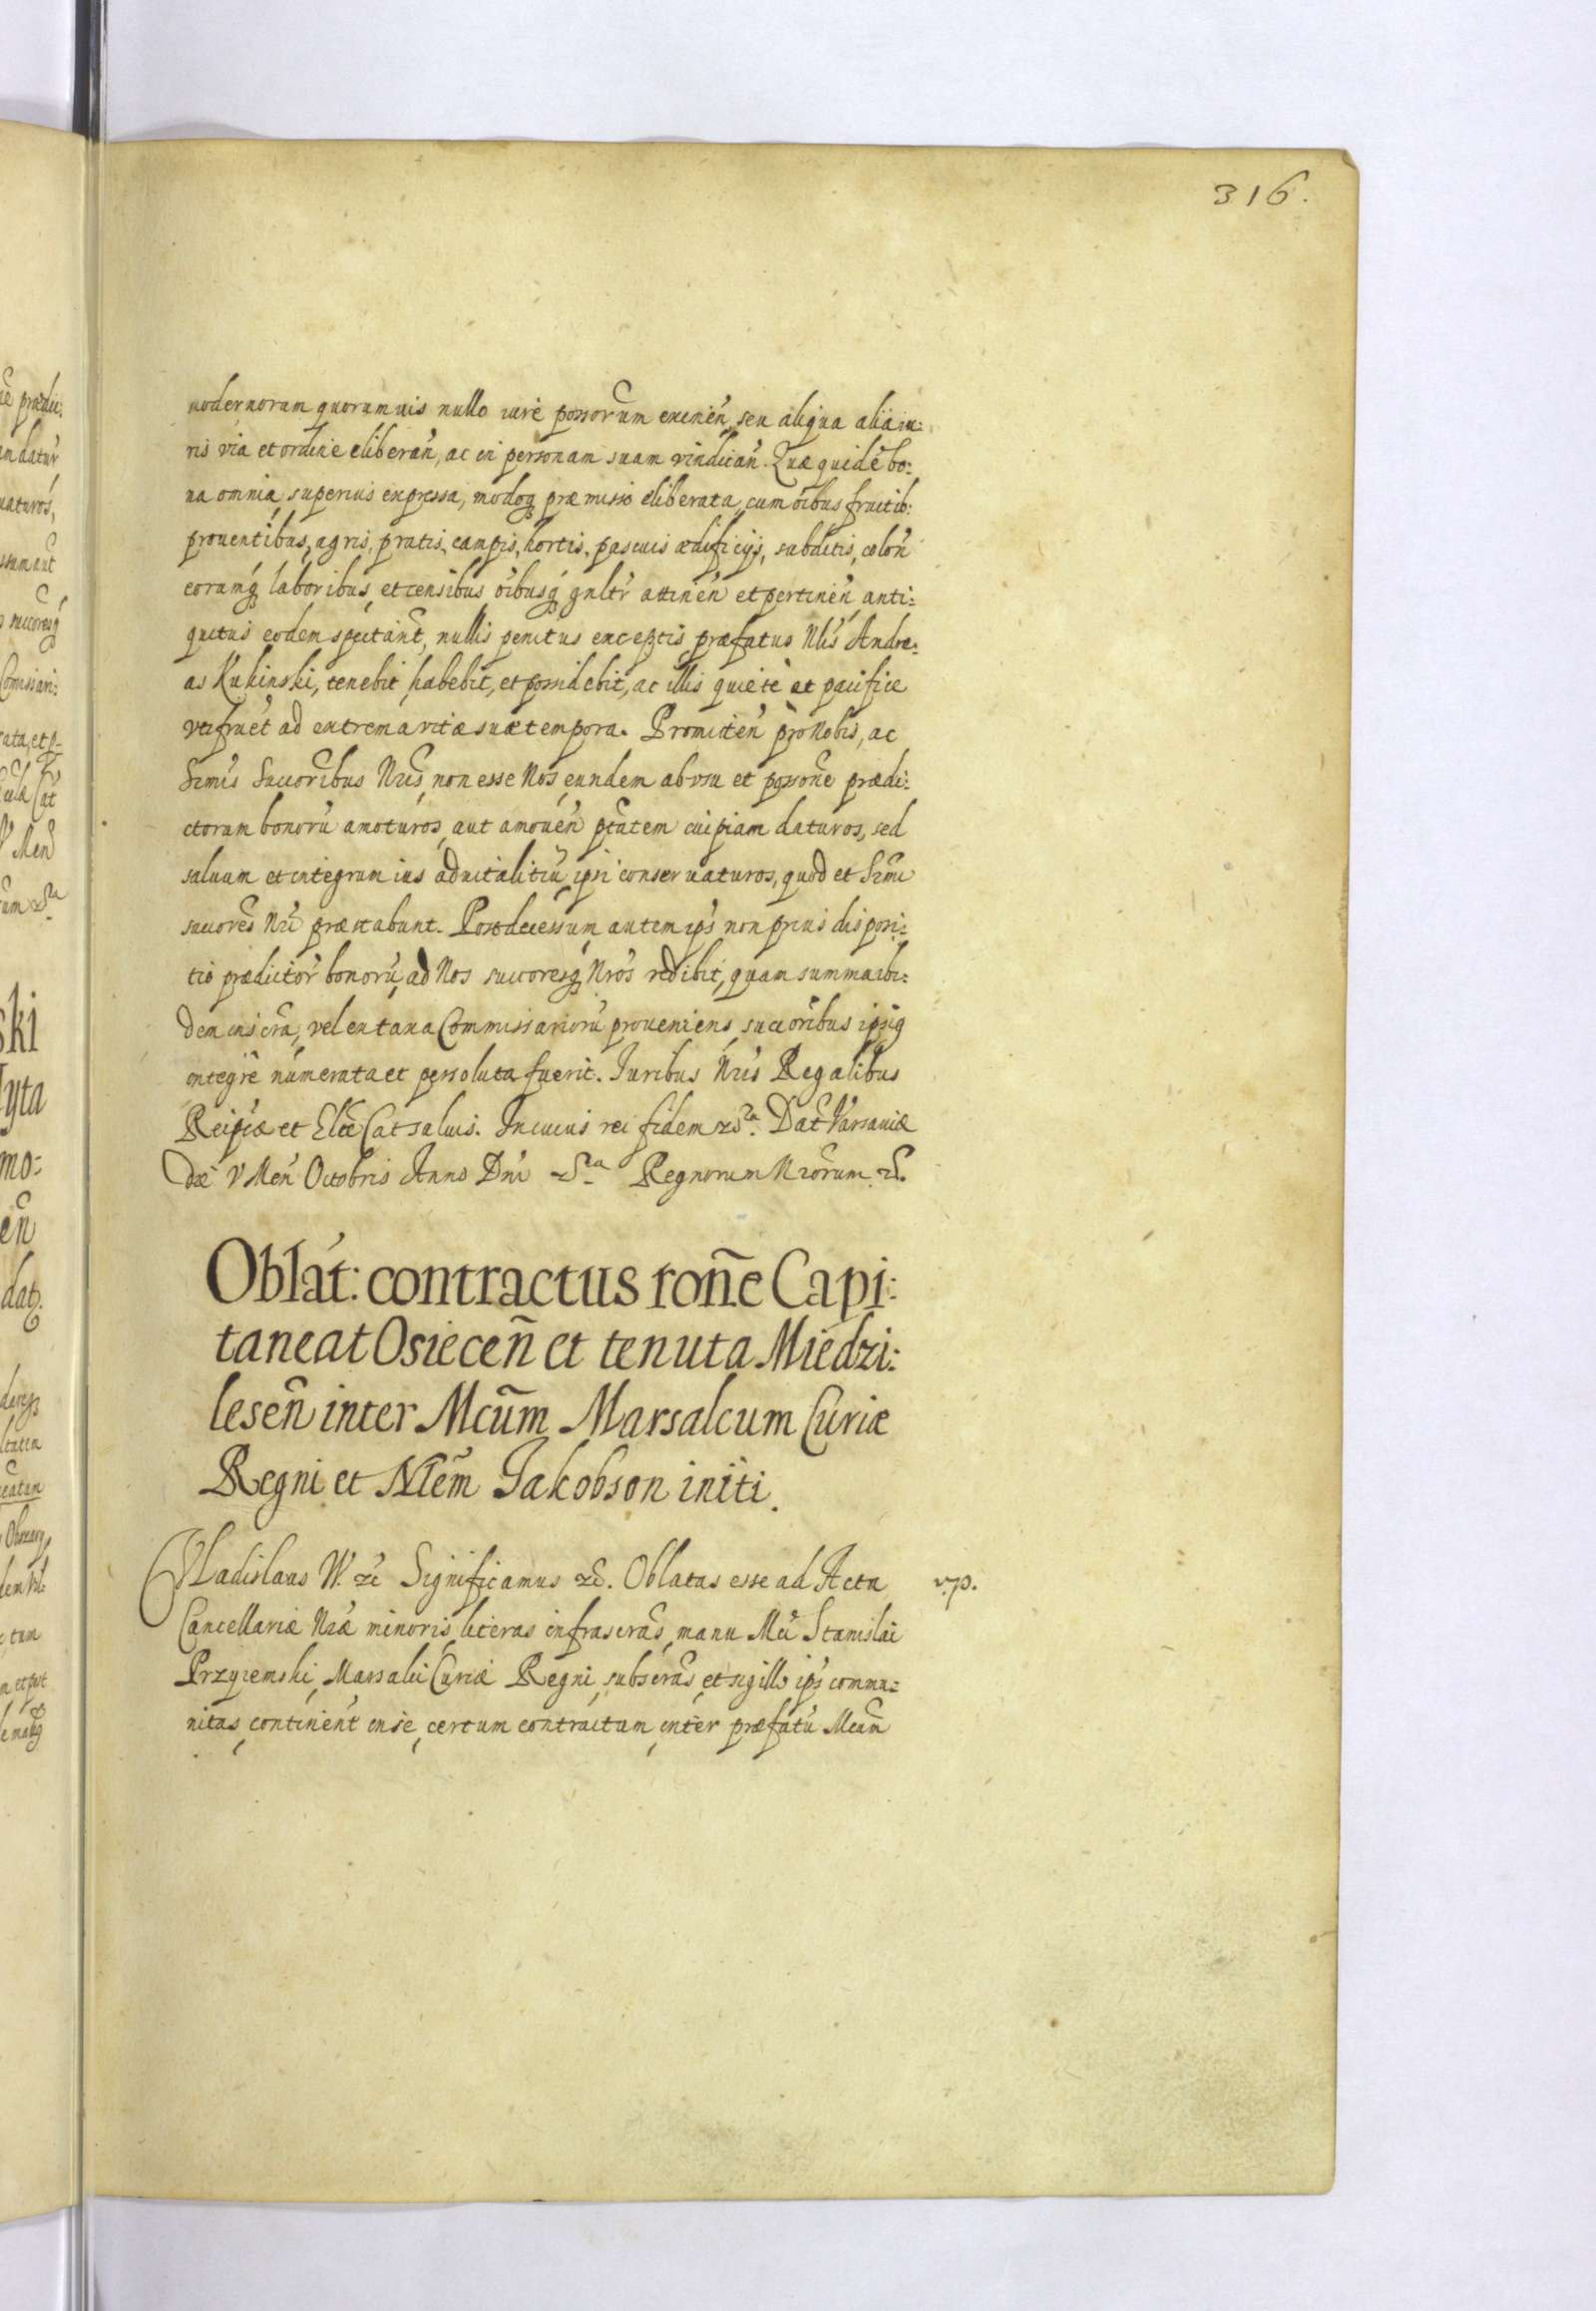 316.
modernorum quorumuis nullo iure possorum eximen̄, seu aliqua alia iu:
ris via et ordine eliberan̄, ac in personam suam vindican̄. Quæ quidē bo:
na omnia superius expressa, modoq́ præmisso eliberata, cum oībus fructib:
prouentibus, agris, pratis, campis, hortis, pascuis ædificijs, subditis, colon̄
eorumq́ laboribus, et censibus oībusq́ gnltr̄ attinen̄ et pertinen̄, anti:
quitus eodem spectan̄t, nullis penitus exceptis præfatus Nlīs Andre:
as Kukinski, tenebit, habebit, et possidebit, ac illis quiete et pacifice
vtifruet̄ ad extrema vitæ suæ tempora. Promitten̄ pro Nobis, ac
Srmis Succoribus Nris, non esse Nos, eundem ab vsu et possone prædi:
ctorum bonorū amoturos, aut amouen̄ ptatem cuipiam daturos, sed
saluum et integrum ius aduitalitiū ipsi conseruaturos, quod et Srmi
succores Nri præstabunt. Post decessum autem ips̄ non prius disposi:
tio prædictor̄ bonorū, ad Nos succoresq́ Nros redibit, quam summa ibi:
dem inscra, vel ex taxa Commissariorū proueniens, succoribus ipsiq
integre numerata et persoluta fuerit. Iuribus Nris Regalibus
Reipcæ et Ecclæ Cat saluis. In cuius rei fidem &ra. Dat̄ Varsauiæ
die V Men̄ Octobris Anno Dni &ra Regnorum Nrorum &.
Oblat: contractus rōne Capi:
taneat Osiecen̄ et tenuta Miedzi:
lesen̄ inter Mcūm Marsalcum Curiæ
Regni et Nlēm Jakobson initi.
Vladislaus IV. &c Significamus &c. Oblatas esse ad Acta
Cancellariæ Nræ minoris, literas infrascras, manu Mci Stanislai
Przyiemski, Marsalci Curiæ Regni, subscras, et sigillo ips̄ commu:
nitas, continen̄t in se, certum contractum, inter præfatū Mcum